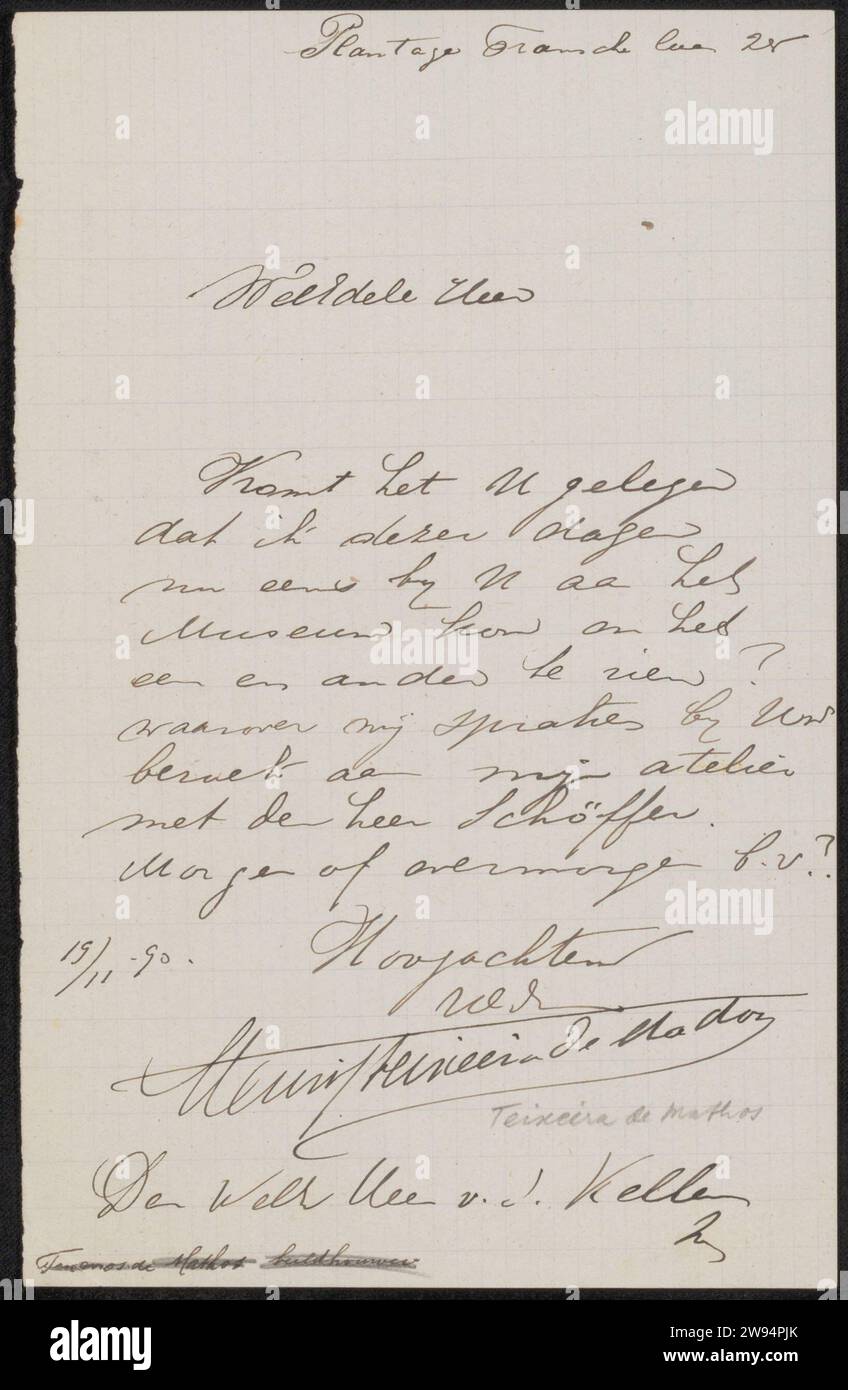 Plantage Fransche laan 28
WelEdele Heer
Komt het U gelegen
dat ik dezer dagen
nu eens by U aa het
Museum kom om het
een en ander te zien?
waarover wij spraken by Uw
bezoek aan mijn atelier
met den heer Schöffer.
Morgen of overmorgen b.v.?
19/11 - 90.
Hoogachtend
Teixeira de Mattos
Teixeira de Mathos
Den WelE Heer v. d. Kellen
de Mathos beeldhouwer
alamy
Image ID: 2W94PJK
www.alamy.com